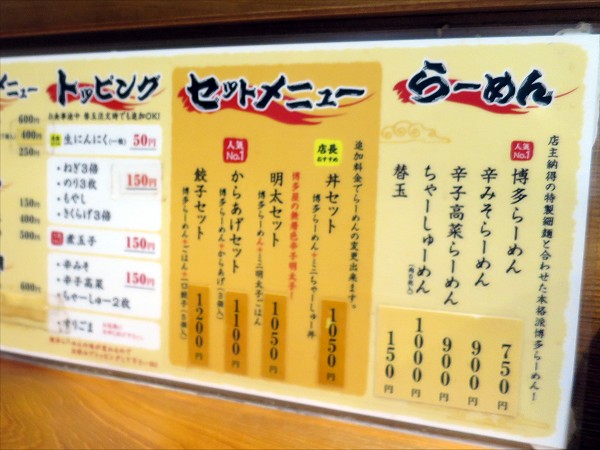 らーめん
店主納得の特製細麺と合わせた本格派博多らーめん!
人気No.1
博多らーめん 750円
辛みそらーめん 900円
辛子高菜らーめん 900円
ちゃーしゅーめん 1000円
替玉 150円
セットメニュー
追加料金でらーめんの変更出来ます。
店長おすすめ
丼セット 1050円
博多らーめん+ミニちゃーしゅー丼
明太セット 1050円
博多らーめん+ミニ明太子ごはん
人気No.1
からあげセット 1100円
博多らーめん+からあげ(3個入)
餃子セット 1200円
トッピング
お食事途中 替玉注文時でも追加OK!
生にんにく(一粒) 50円
・ねぎ3倍
・のり3枚
・もやし
・きくらげ3倍
150円
煮玉子 150円
・辛みそ
・辛子高菜
・ちゃーしゅー2枚
150円
・すりごま
メニュー
600円
400円
250円
150円
500円
600円